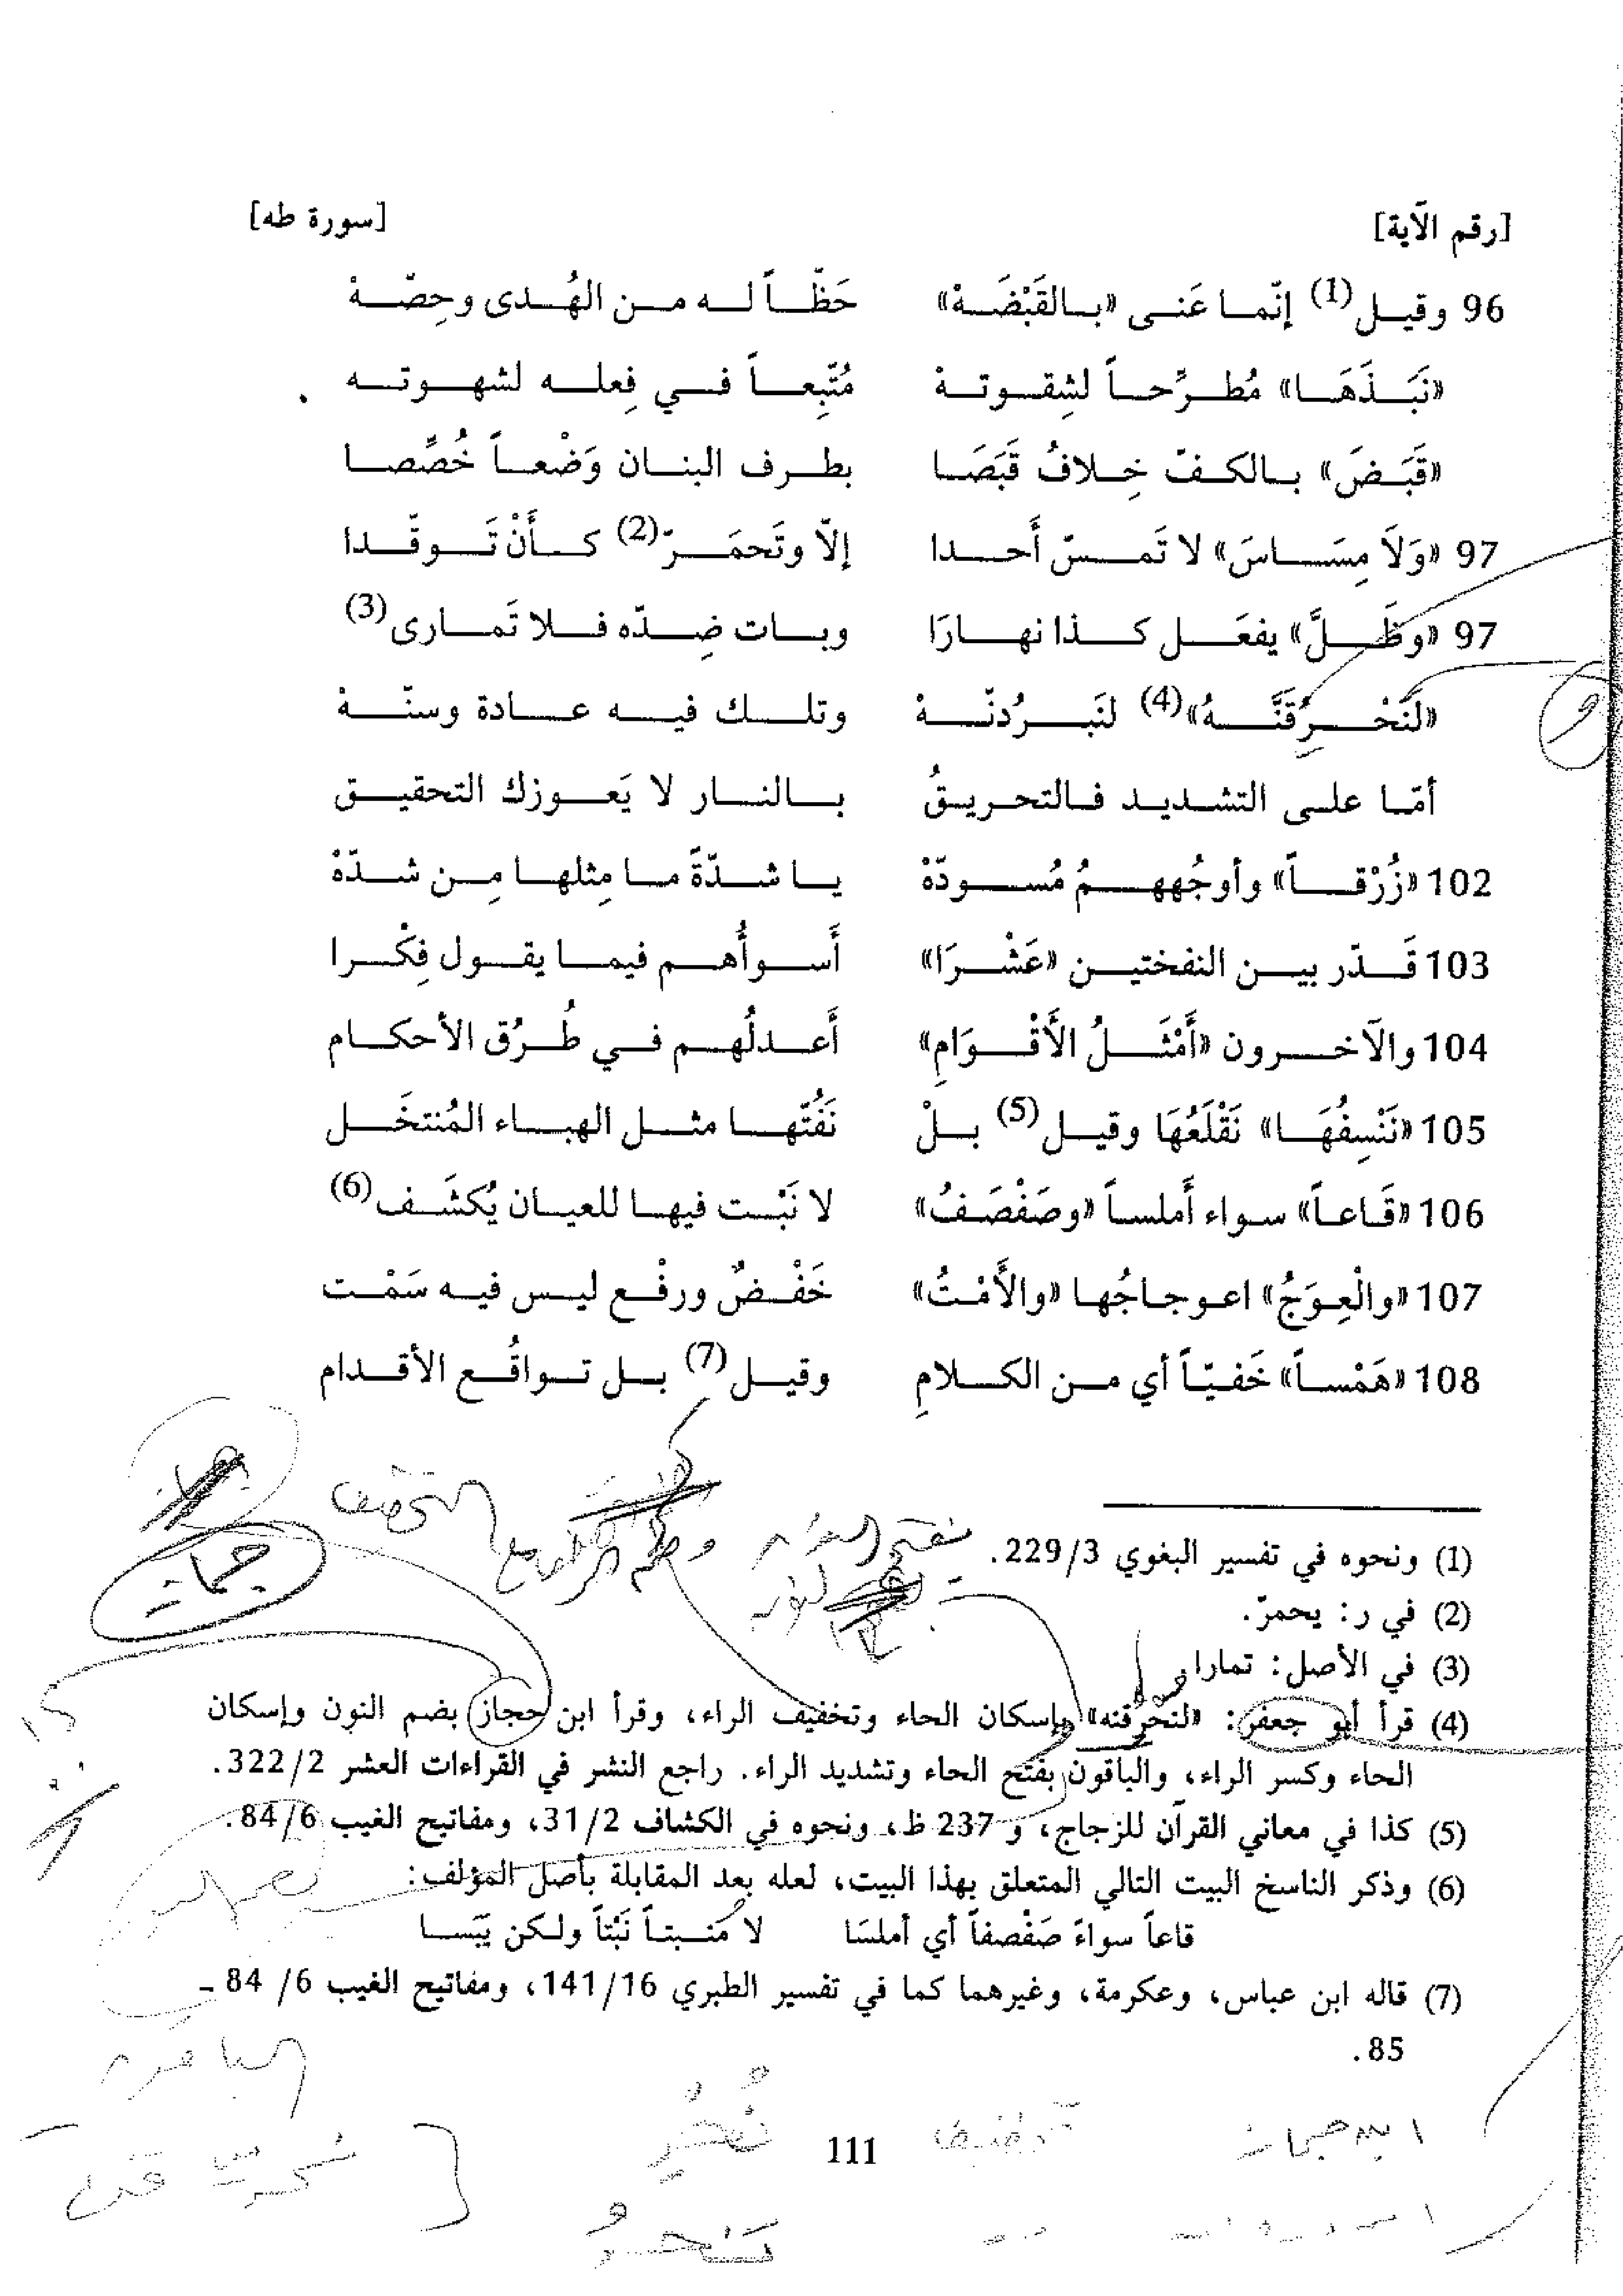 [رقم الآية] [سورة طه]
96 وقيل(1) إنّما عَنى «بالقَبْضَهْ» حَظّاً له من الهُدى وحِصّهْ
«نَبَذَهَا» مُطرَّحاً لشِقوتهْ مُتّبِعاً في فِعله لشهوته
«قَبَضَ» بالكفّ خِلافُ قَبَصَا بطرف البنان وَضْعاً خُصِّصا
97 «وَلاَ مِسَاسَ» لا تَمسّ أحدا إلاّ وتَحمَرّ(2) كأَنْ تَوقّدا
97 «وظَلَّ» يفعَل كذا نهارَا وبات ضِدّه فلا تَمارى(3)
«لَنُحْرِقَنَّهُ»(4) لنَبرُدنّهْ وتلك فيه عادة وسنّهْ
أمّا على التشديد فالتحريقُ بالنار لا يَعوزك التحقيق
102 «زُرْقاً» وأوجُههمُ مُسودّهْ يا شدّةً ما مِثلها مِن شدّهْ
103 قَدّر بين النفختين «عَشْرَا» أَسوأُهم فيما يقول فِكْرا
104 والآخرون «أَمْثَلُ الأَقْوَامِ» أَعدلُهم في طُرُق الأحكام
105 «نَنْسِفُهَا» نَقْلَعُهَا وقيل(5) بلْ نَفُتّها مثل الهباء المُنتخَل
106 «قَاعاً» سواء أَملساً «وصَفْصَفُ» لا نَبْت فيها للعيان يُكشَف(6)
107 «والْعِوَجُ» اعوجاجُها «والأَمْتُ» خَفْضٌ ورفْع ليس فيه سَمْت
108 «هَمْساً» خَفيّاً أي من الكلامِ وقيل(7) بل تواقُع الأقدام
(1) ونحوه في تفسير البغوي 229/3.
(2) في ر: يحمرّ.
(3) في الأصل: تمارا
(4) قرأ أبو جعفر: «لنحرقنه» بإسكان الحاء وتخفيف الراء، وقرأ ابن حجاز بضم النون وإسكان
الحاء وكسر الراء، والباقون بفتح الحاء وتشديد الراء. راجع النشر في القراءات العشر 322/2.
(5) كذا في معاني القرآن للزجاج، و 237 ظ، ونحوه في الكشاف 31/2، ومفاتيح الغيب 84/6.
(6) وذكر الناسخ البيت التالي المتعلق بهذا البيت، لعله بعد المقابلة بأصل المؤلف:
قاعاً سواءً صَفْصفاً أي أملسَا لا مَنبتاً نَبْتاً ولكن يَبَسا
(7) قاله ابن عباس، وعكرمة، وغيرهما كما في تفسير الطبري 141/16، ومفاتيح الغيب 6/ 84 ـ
85.
111